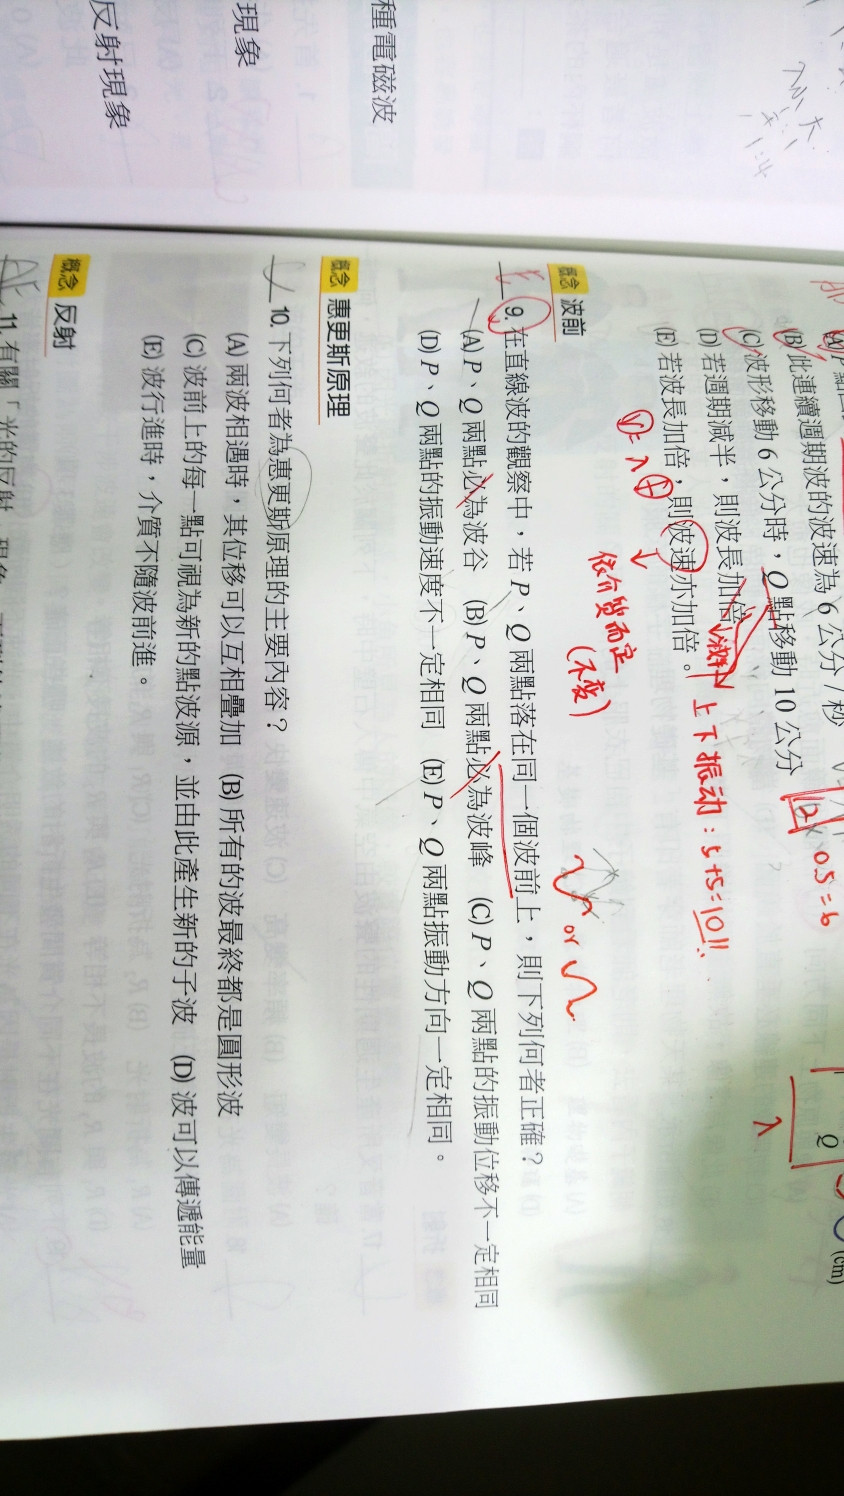 種電磁波
現象
反射現象
(B) 此連續週期波的波速為 6 公分 / 秒
(C) 波形移動 6 公分時，Q 點移動 10 公分
(D) 若週期減半，則波長加倍
減半 上下振动：5+5=10
(E) 若波長加倍，則波速亦加倍。
V=λf
依介質而定
(不變)
0.5=6
λ
Q
(cm)
概念 波前
9. 在直線波的觀察中，若 P、Q 兩點落在同一個波前上，則下列何者正確？
or
(A) P、Q 兩點必為波谷 (B) P、Q 兩點必為波峰 (C) P、Q 兩點的振動位移不一定相同
(D) P、Q 兩點的振動速度不一定相同 (E) P、Q 兩點振動方向一定相同。
概念 惠更斯原理
10. 下列何者為惠更斯原理的主要內容？
(A) 兩波相遇時，其位移可以互相疊加 (B) 所有的波最終都是圓形波
(C) 波前上的每一點可視為新的點波源，並由此產生新的子波 (D) 波可以傳遞能量
(E) 波行進時，介質不隨波前進。
概念 反射
11. 有關「光的反射